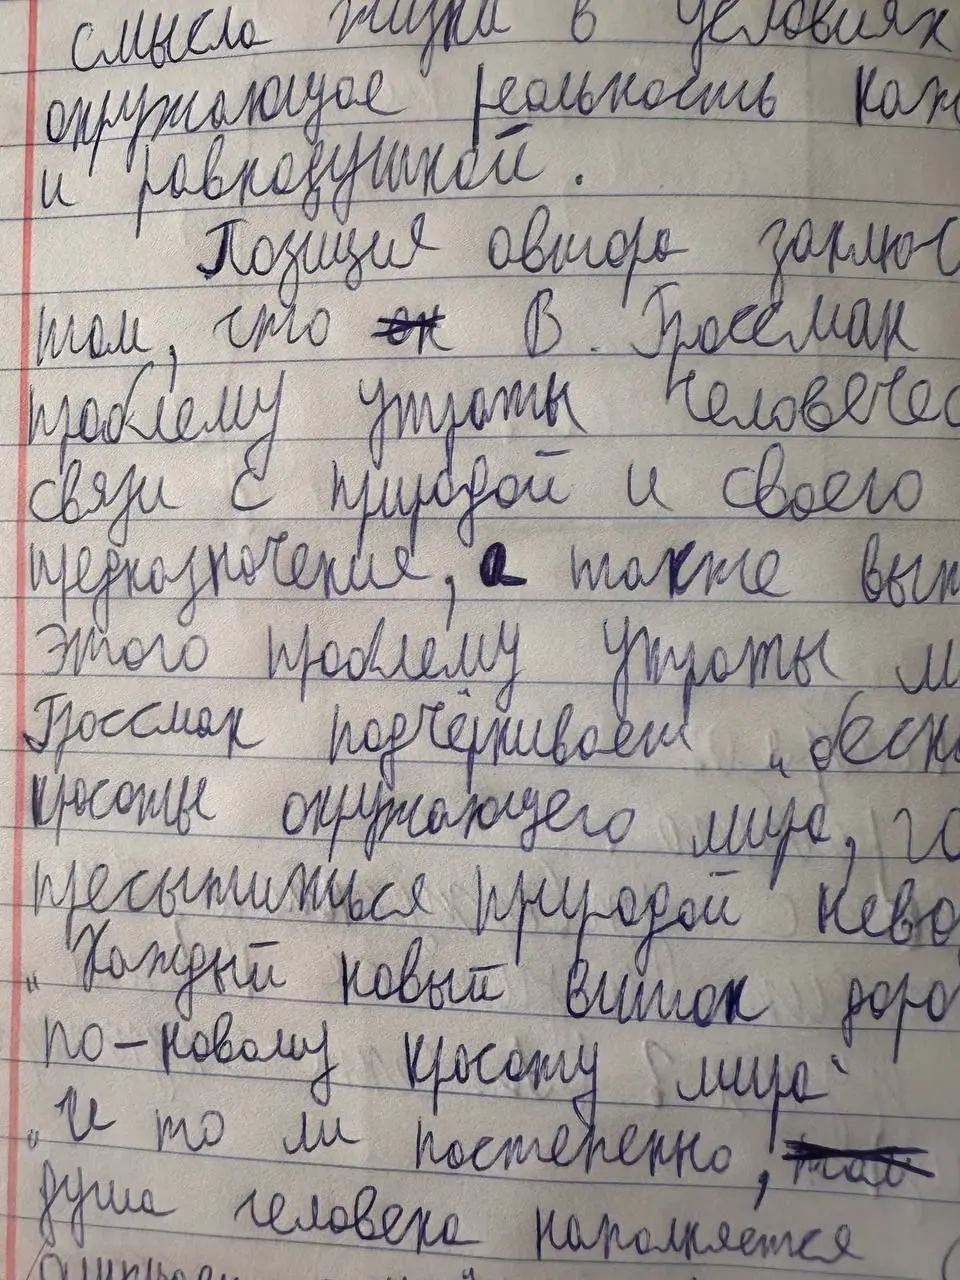 смысла жизни в условиях
окружающая реальность каж
и равнодушной.
Позиция автора заключ
том, что он В. Гроссман
проблему утраты человечес
связи с природой и своего
предназначения, а также выт
этого проблему утраты м
Гроссман подчёркивает „беско
красоты окружающего мира, го
пресытиться природой нево
„Каждый новый виток доро
по-новому красоту мира“
„И то ли постепенно,
душа человека наполняется